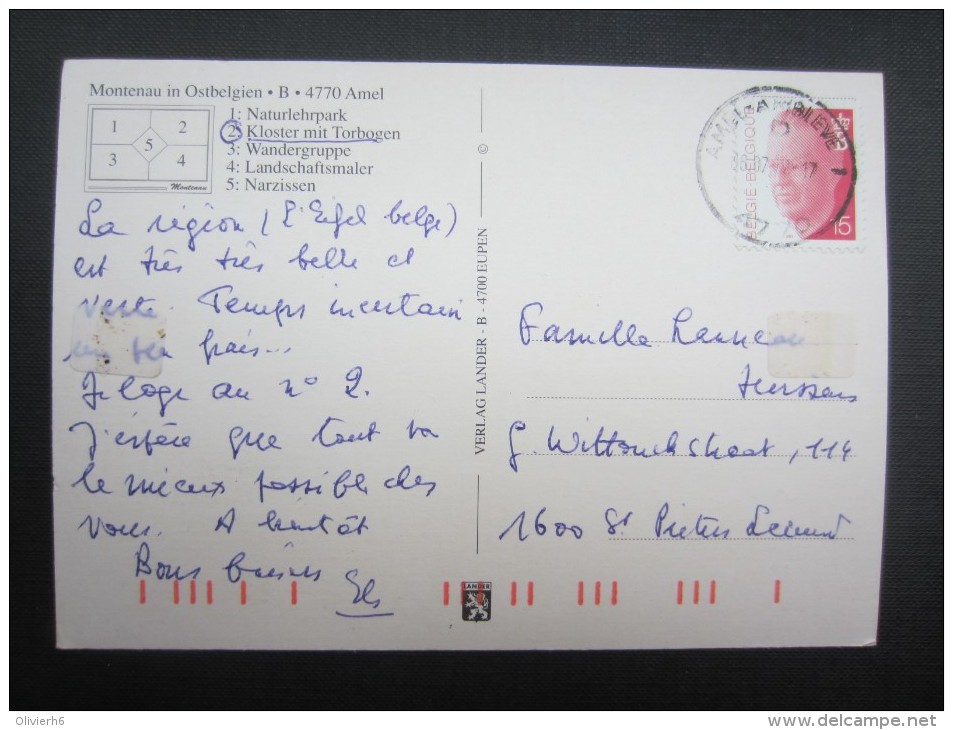 Montenau in Ostbelgien • B • 4770 Amel
1
2
3
4
5
Montenau
1: Naturlehrpark
2: Kloster mit Torbogen
3: Wandergruppe
4: Landschaftsmaler
5: Narzissen
La région (l'Eifel belge)
est très très belle et
vaste. Temps incertain
un peu frais...
Je loge au n° 2.
J'espère que tout va
le mieux possible chez
vous. A bientôt
Bons baisers
Els
VERLAG LANDER - B - 4700 EUPEN
©
LANDER
AMEL-AMBLEVE
1
4770
BELGIË-BELGIQUE
15
Famille
G. Wittouckstraat, 114
1600 St Pieters Leeuw
Olivierh6
www.delcampe.net